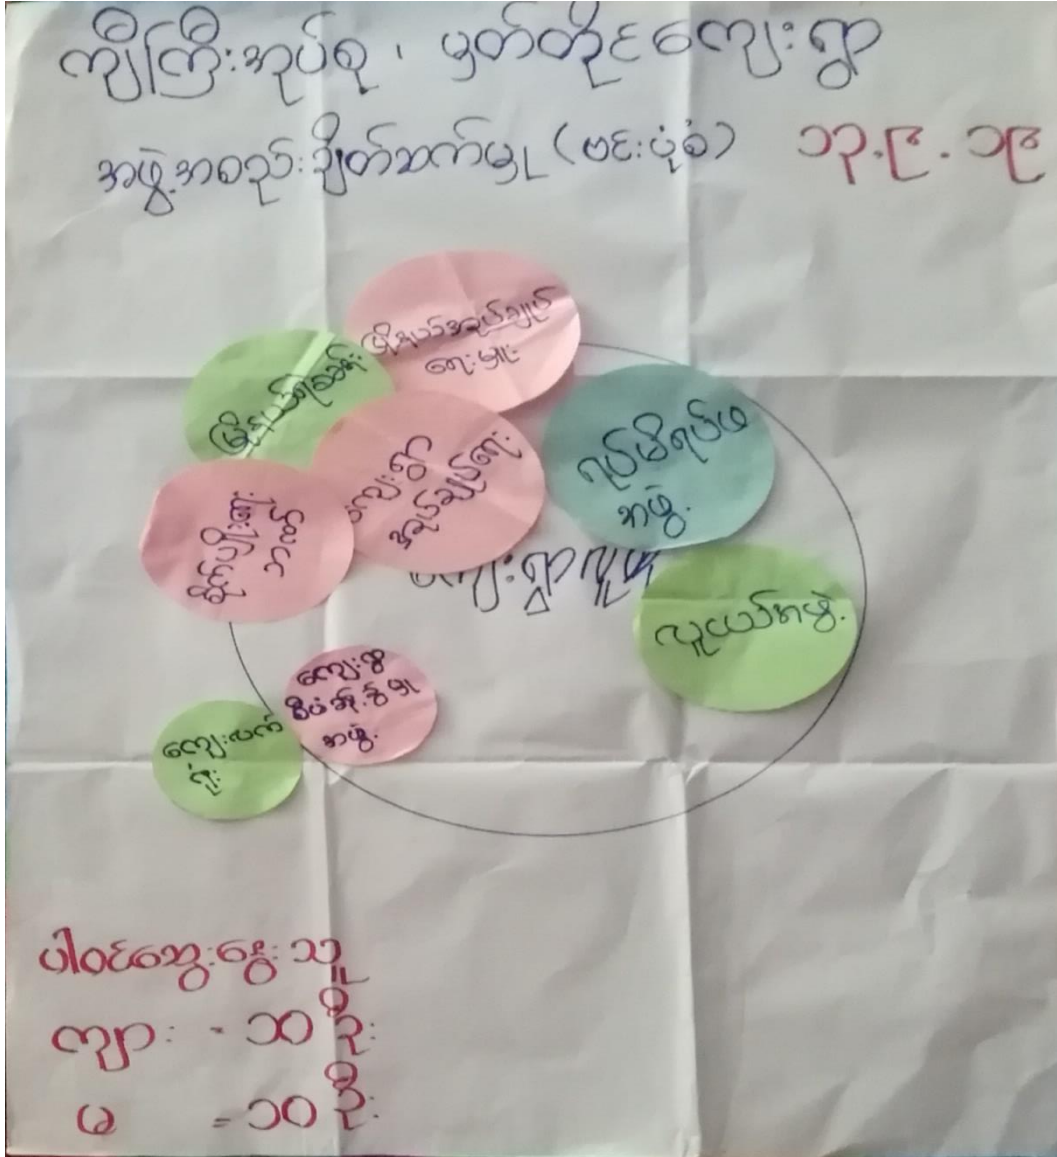 ကျီကြီးအုပ်စု ၊ မှတ်တိုင်ကျေးရွာ
အဖွဲ့အစည်းချိတ်ဆက်မှု (ဗင်းပုံစံ) ၁၃.၉.၁၉
မြို့နယ်အုပ်ချုပ်
ရေးမှူး
မြို့နယ်ရဲစခန်း
ကျေးရွာ
အုပ်ချုပ်ရေး
ရပ်မိရပ်ဖ
အဖွဲ့
စိုက်ပျိုးရေး
ကျေးရွာလူထု
လူငယ်အဖွဲ့
ကျေးရွာ
စီမံခန့်ခွဲမှု
အဖွဲ့
ကျေးလက်
ဦး
ပါဝင်ဆွေးနွေးသူ
ကျား - ၁၀ ဦး
မ = ၁၀ ဦး